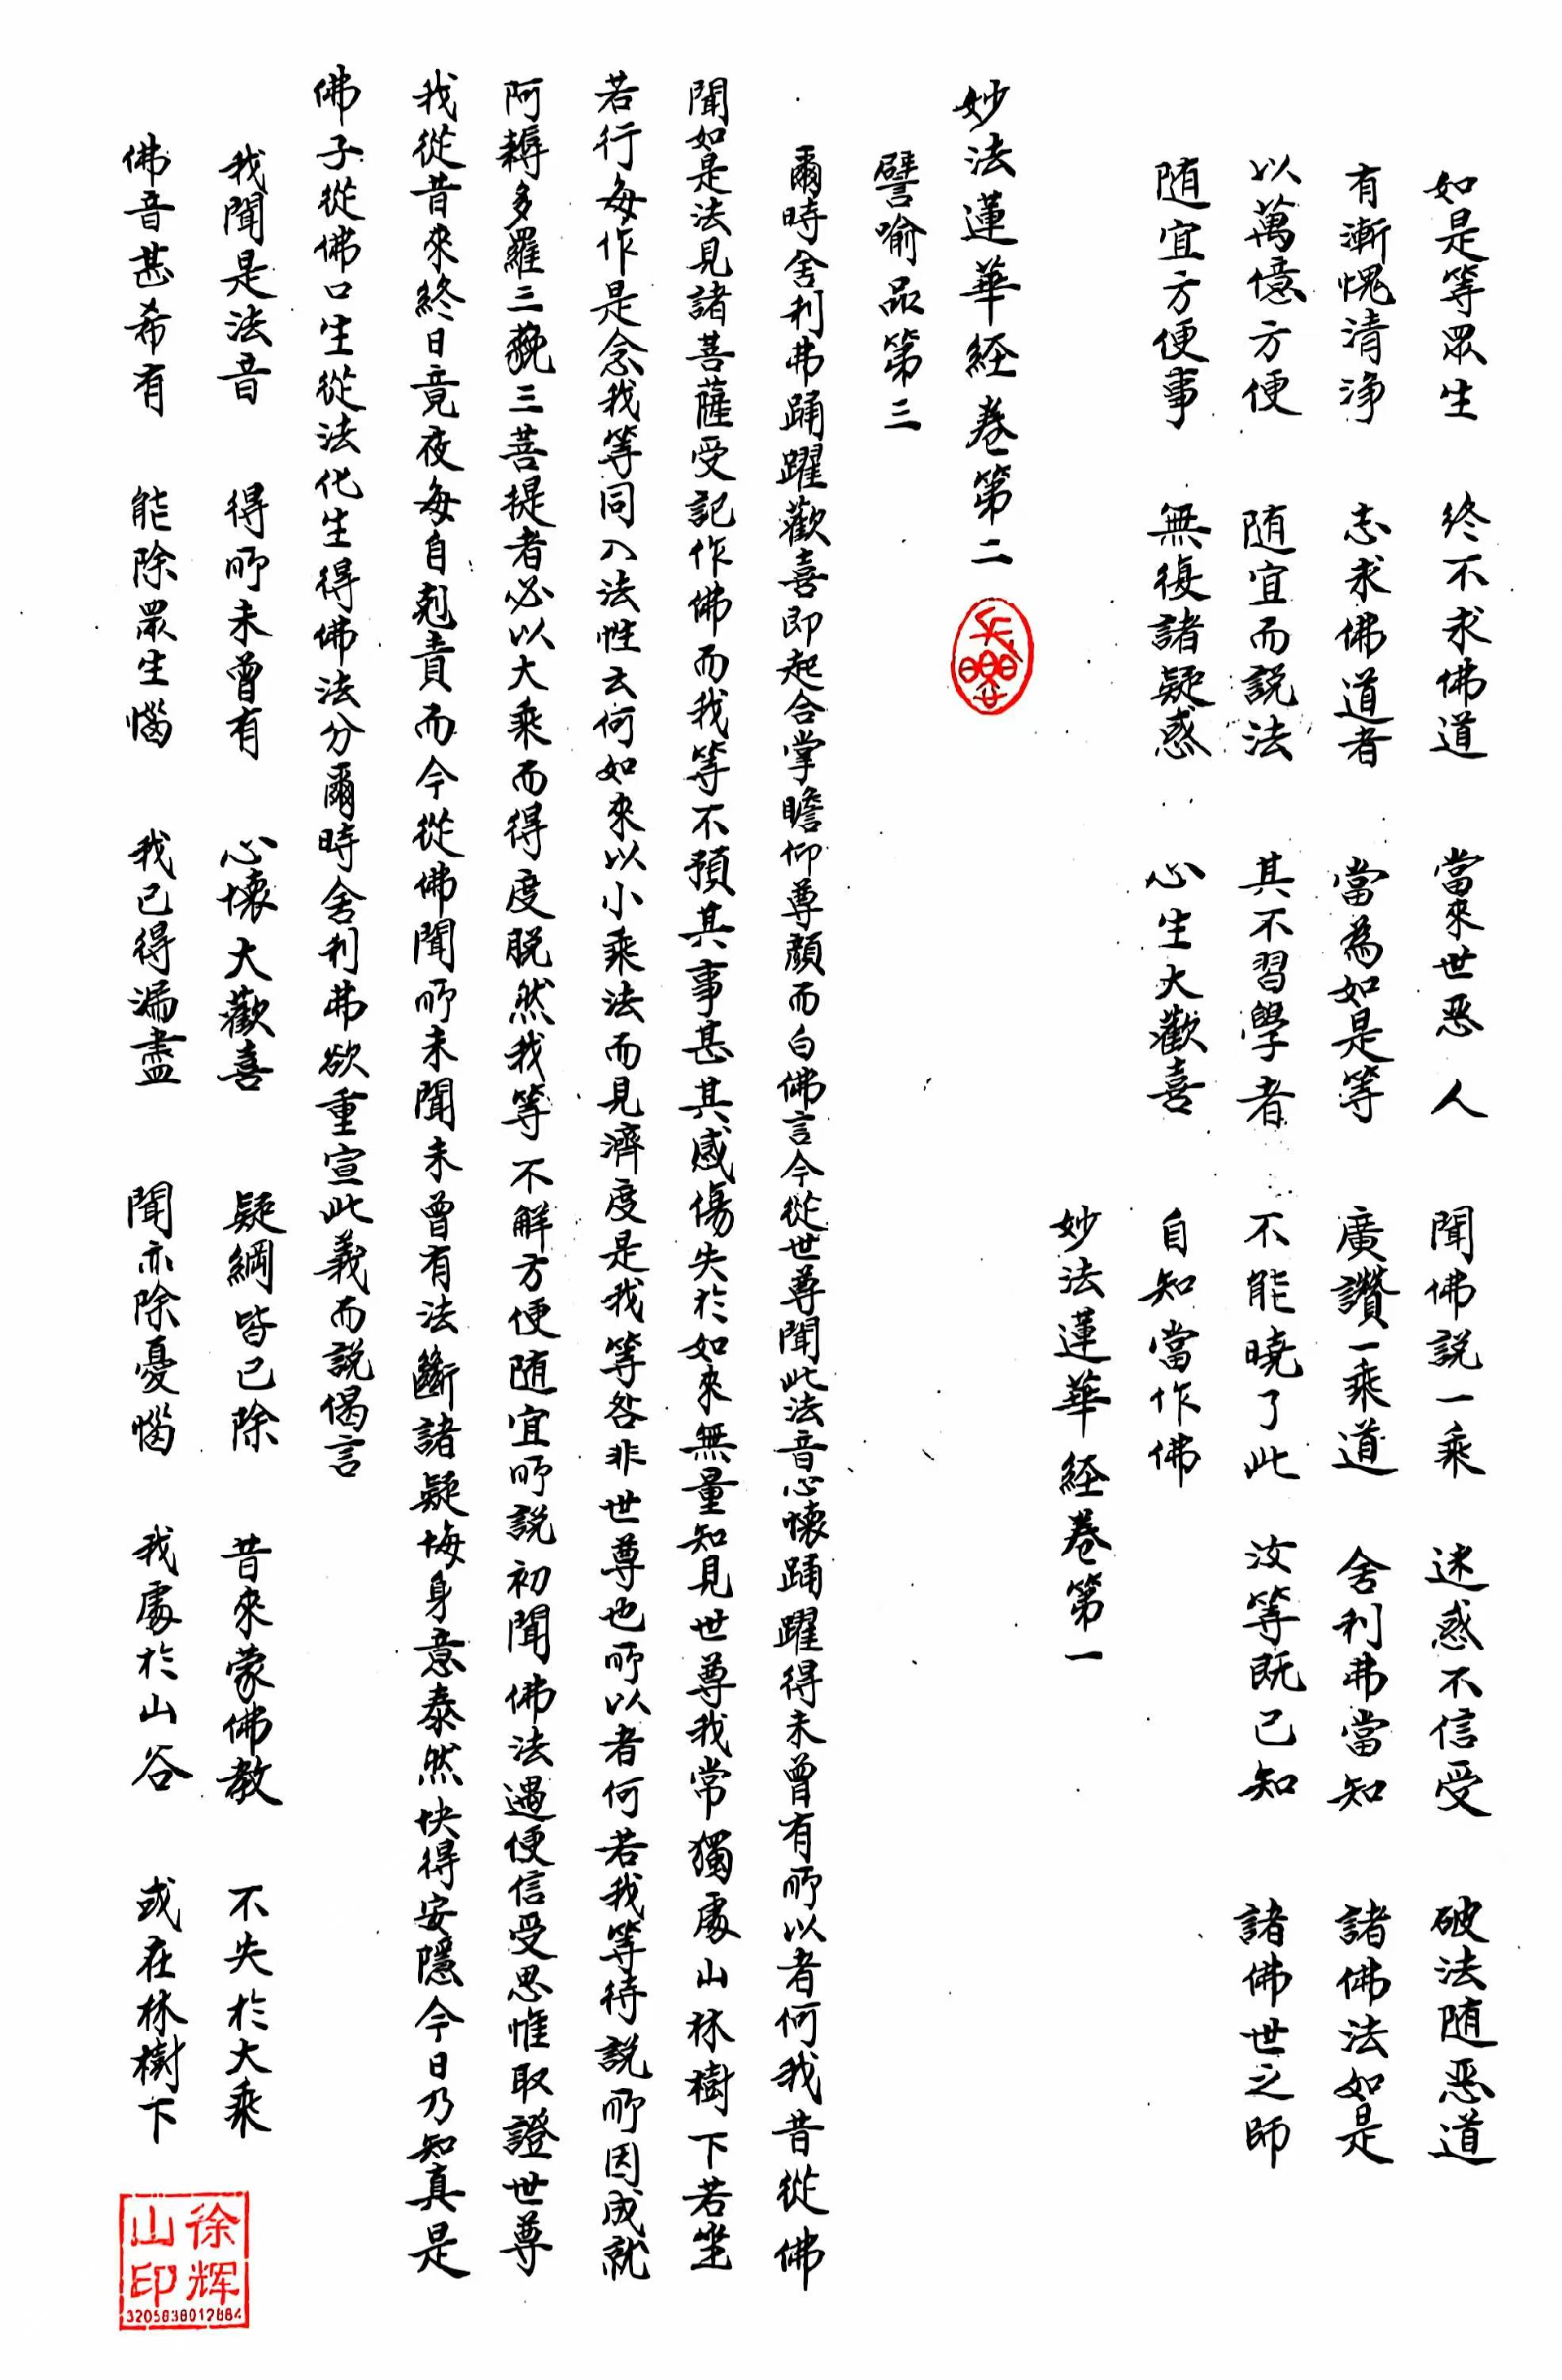 如是等眾生 終不求佛道 當來世惡人 聞佛説一乘 迷惑不信受 破法随惡道
有漸愧清淨 志求佛道者 當為如是等 廣讚一乘道 舍利弗當知 諸佛法如是
以萬億方便 随宜而説法 其不習學者 不能曉了此 汝等既已知 諸佛世之師
随宜方便事 無復諸疑惑 心生大歡喜 自知當作佛
妙法蓮華経卷第一
妙法蓮華経卷第二
譬喻品第三
爾時舍利弗踊躍歡喜即起合掌瞻仰尊顏而白佛言今從世尊聞此法音心懷踊躍得未曾有所以者何我昔從佛
聞如是法見諸菩薩受記作佛而我等不預其事甚其感傷失於如來無量知見世尊我常獨處山林樹下若坐
若行每作是念我等同入法性云何如來以小乘法而見濟度是我等咎非世尊也所以者何若我等待説所因成就
阿耨多羅三藐三菩提者必以大乘而得度脱然我等不解方便随宜所説初聞佛法遇便信受思惟取證世尊
我從昔來終日竟夜每自剋責而今從佛聞所未聞未曾有法斷諸疑悔身意泰然快得安隱今日乃知真是
佛子從佛口生從法化生得佛法分爾時舍利弗欲重宣此義而説偈言
我聞是法音 得所未曾有 心懷大歡喜 疑網皆已除 昔來蒙佛教 不失於大乘
佛音甚希有 能除眾生惱 我已得漏盡 聞亦除憂惱 我處於山谷 或在林樹下
徐辉山印
3205838012884